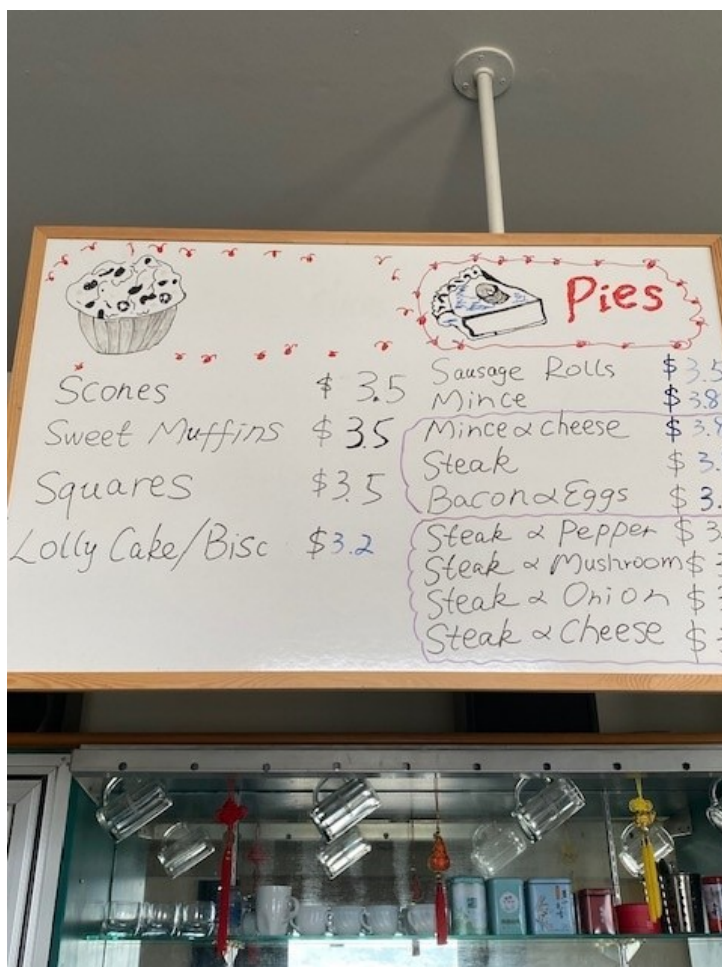 Scones $ 3.5
Sweet Muffins $ 35
Squares $3.5
Lolly Cake/Bisc $3.2
Pies
Sausage Rolls $ 3.5
Mince $3.8
Mince & cheese $ 3.
Steak $ 3.
Bacon & Eggs $ 3.
Steak & Pepper $ 3.
Steak & Mushroom $
Steak & Onion $
Steak & Cheese $